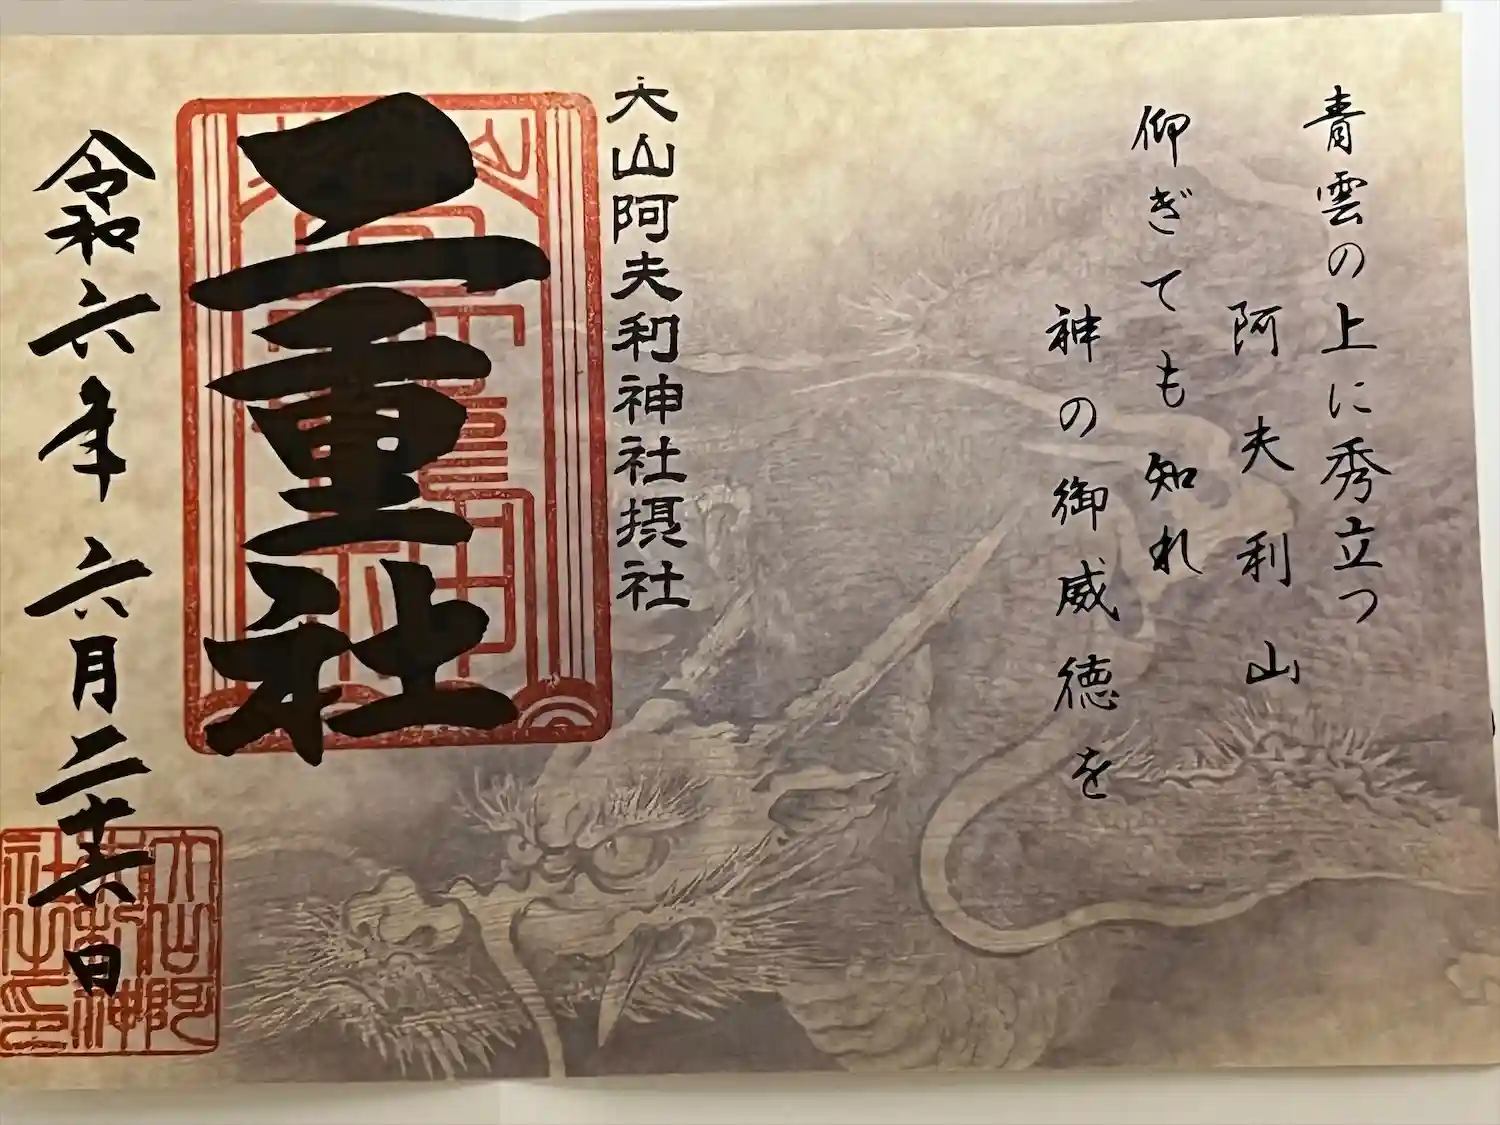 青雲の上に秀立つ
阿夫利山
仰ぎても知れ
神の御威徳を
大山阿夫利神社摂社
二重社
令和六年六月二十六日
大山阿
夫利神
社之印